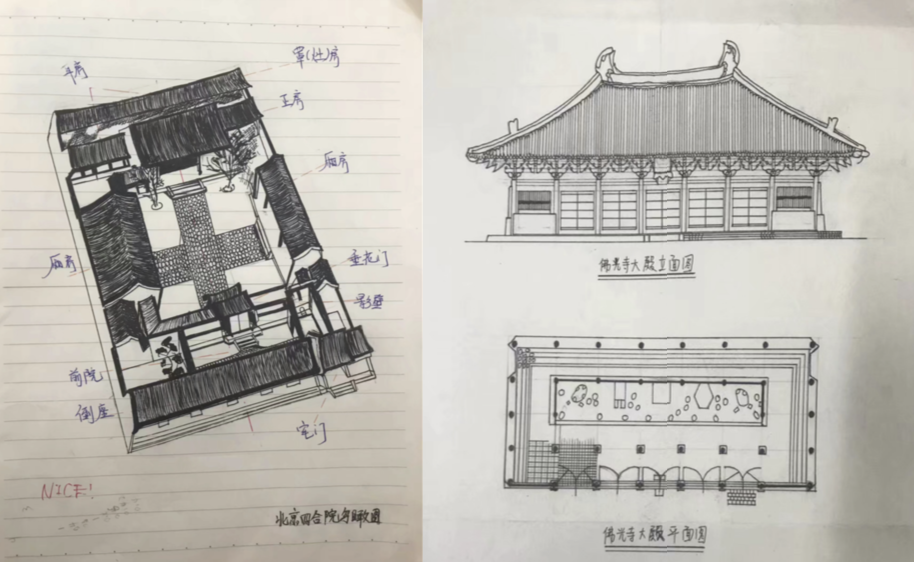 平房
罩(灶)房
正房
厢房
厢房
垂花门
影壁
前院
倒座
宅门
NICE!
北京四合院鸟瞰图
佛光寺大殿立面图
佛光寺大殿平面图